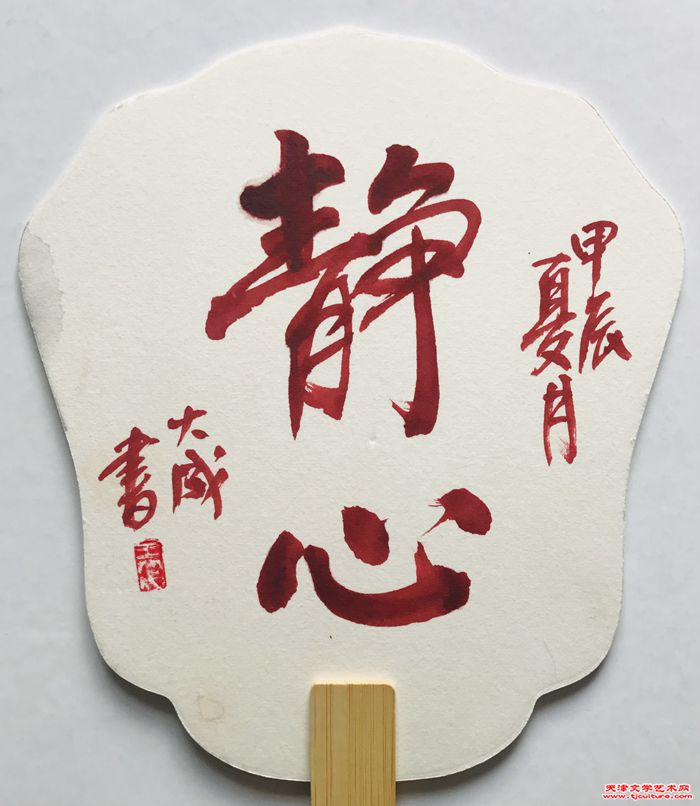 甲辰
夏月
静心
大成
书
天津文学艺术网
www.tjculture.com